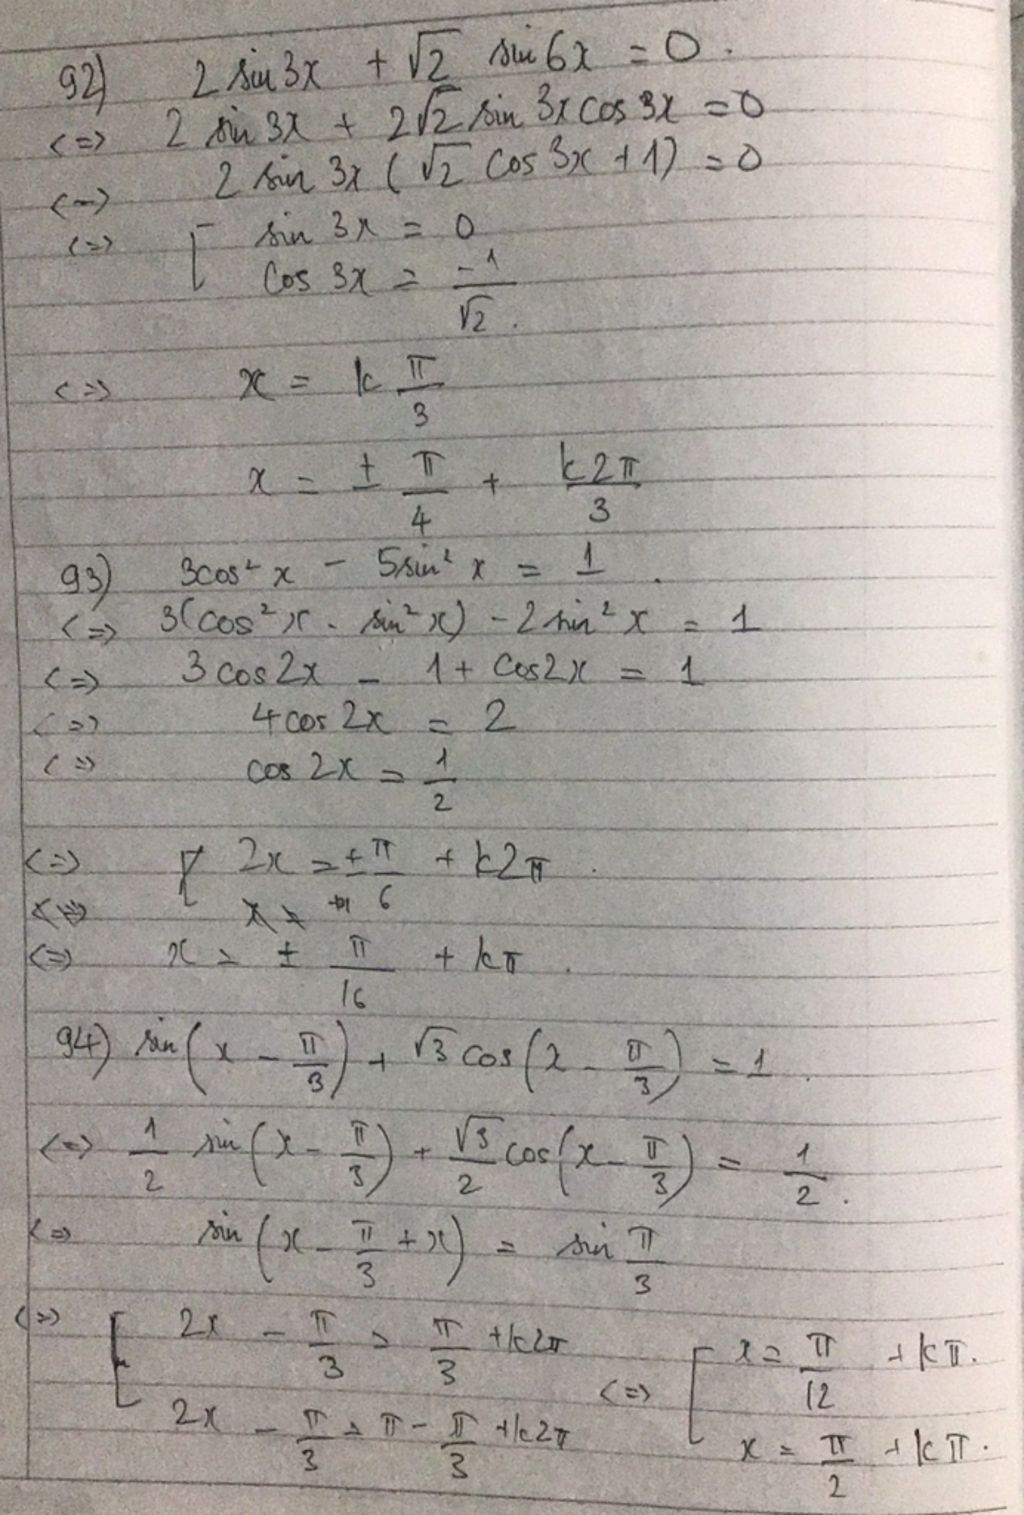 92) 2 sin3x + √2 sin6x = 0.
<=> 2 sin 3x + 2√2 sin 3x cos 3x = 0
<=> 2 sin 3x (√2 cos 3x + 1) = 0
<=> [ sin 3x = 0
cos 3x = -1/√2.
<=> x = k π/3
x = ± π/4 + k2π/3
93) 3cos² x - 5sin² x = 1.
<=> 3(cos² x - sin² x) - 2 sin² x = 1
<=> 3 cos2x - 1 + cos2x = 1
<=> 4 cos 2x = 2
<=> cos 2x = 1/2
<=> [ 2x = ± π/6 + k2π.
<=> x = ± π/16 + kπ.
94) sin(x - π/3) + √3 cos(x - π/3) = 1.
<=> 1/2 sin(x - π/3) + √3/2 cos(x - π/3) = 1/2.
<=> sin(x - π/3 + x) = sin π/3
<=> [ 2x - π/3 = π/3 + k2π
2x - π/3 = π - π/3 + k2π
<=> [ x = π/12 + kπ.
x = π/2 + kπ.